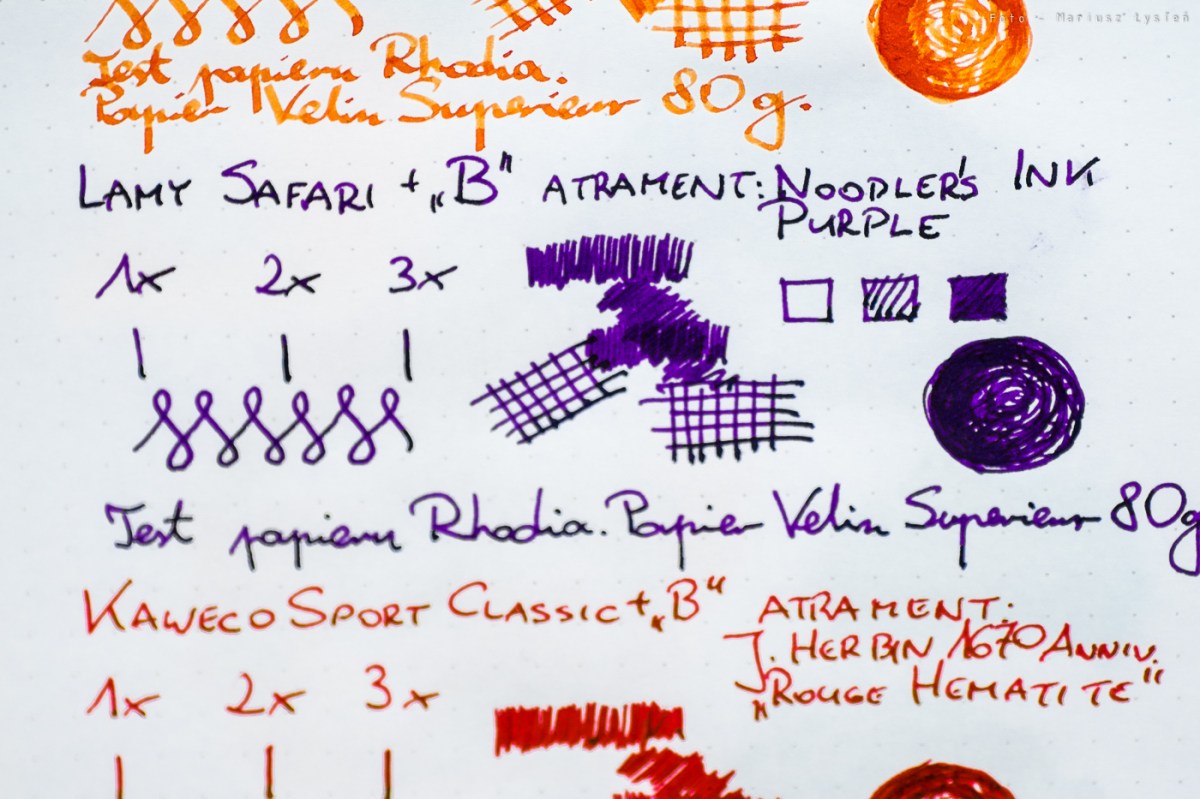 Foto - Mariusz Łysień
Test papieru Rhodia.
Papier Velin Superieur 80g.
LAMY SAFARI + „B” ATRAMENT: NOODLER'S INK
PURPLE
1x 2x 3x
Test papieru Rhodia. Papier Velin Superieur 80g
KAWECO SPORT CLASSIC + „B” ATRAMENT:
J. HERBIN 1670 ANNIV.
„ROUGE HEMATITE”
1x 2x 3x